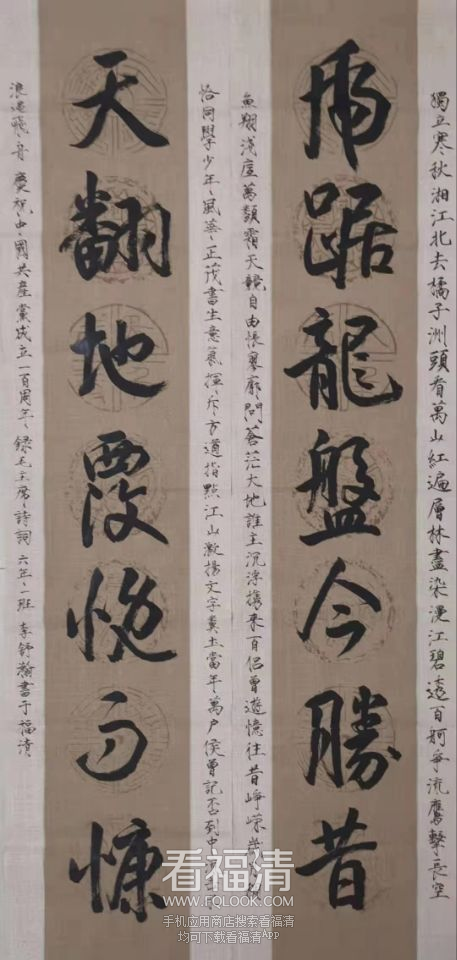 獨立寒秋湘江北去橘子洲頭看萬山紅遍層林盡染漫江碧透百舸爭流鷹擊長空
虎踞龍盤今勝昔
魚翔淺底萬類霜天競自由悵寥廓問蒼茫大地誰主沉浮攜來百侶曾遊憶往昔崢嶸歲
恰同學少年風華正茂書生意氣揮斥方遒指點江山激揚文字糞土當年萬戶侯曾記否到中
天翻地覆慨而慷
浪遏飛舟 慶祝中國共產黨成立一百周年錄毛主席詩詞 六年一班 李舒瀚書于福清
看福清
WWW.FQLOOK.COM
手机应用商店搜索看福清
均可下载看福清App